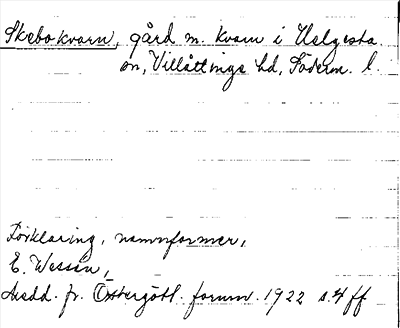 Skebokvarn, gård m. kvarn i Helgesta
sn, Villåttinge hd, Söderm. l.
Förklaring, namnformer,
E. Wessén,
Medd. fr. Östergötl. fornm. 1922 s. 4 ff